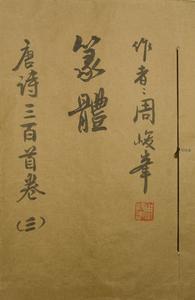 作者：周峻峯
篆體
唐诗三百首卷(三)